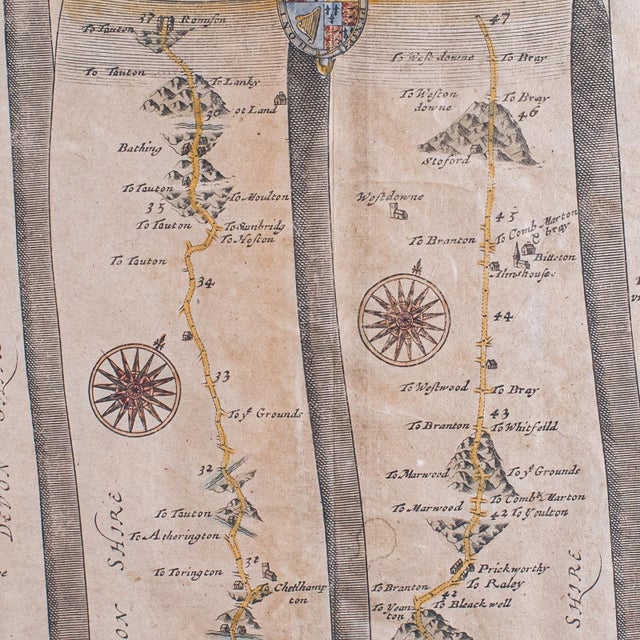 37 Romson
To Tauton
To Tauton
To Lanky
36
ot Land
Bathing
To Tauton
To Moulton
35
To Tauton
To Sunbridg
To Hoston
To Tauton
34
33
To yᵉ Grounds
32
To Tauton
To Atherington
To Torington
31
Chettlhamp
ton
DEVON SHIRE
ON SHIRE
47
To West downe
To Bray
To Weston
downe
To Bray
46
Stoford
Westdowne
45
To Comb Marton
& bray
To Branton
Bitteton
Almshouse
44
To Westwood
To Bray
43
To Branton
To Whitfeild
To Marwood
To yᵉ Grounds
To Combᵉ Marton
To Marwood
42
To Youlton
Prickworthy
To Raley
To Branton
To Yean
ton
To Bleackwell
SHIRE